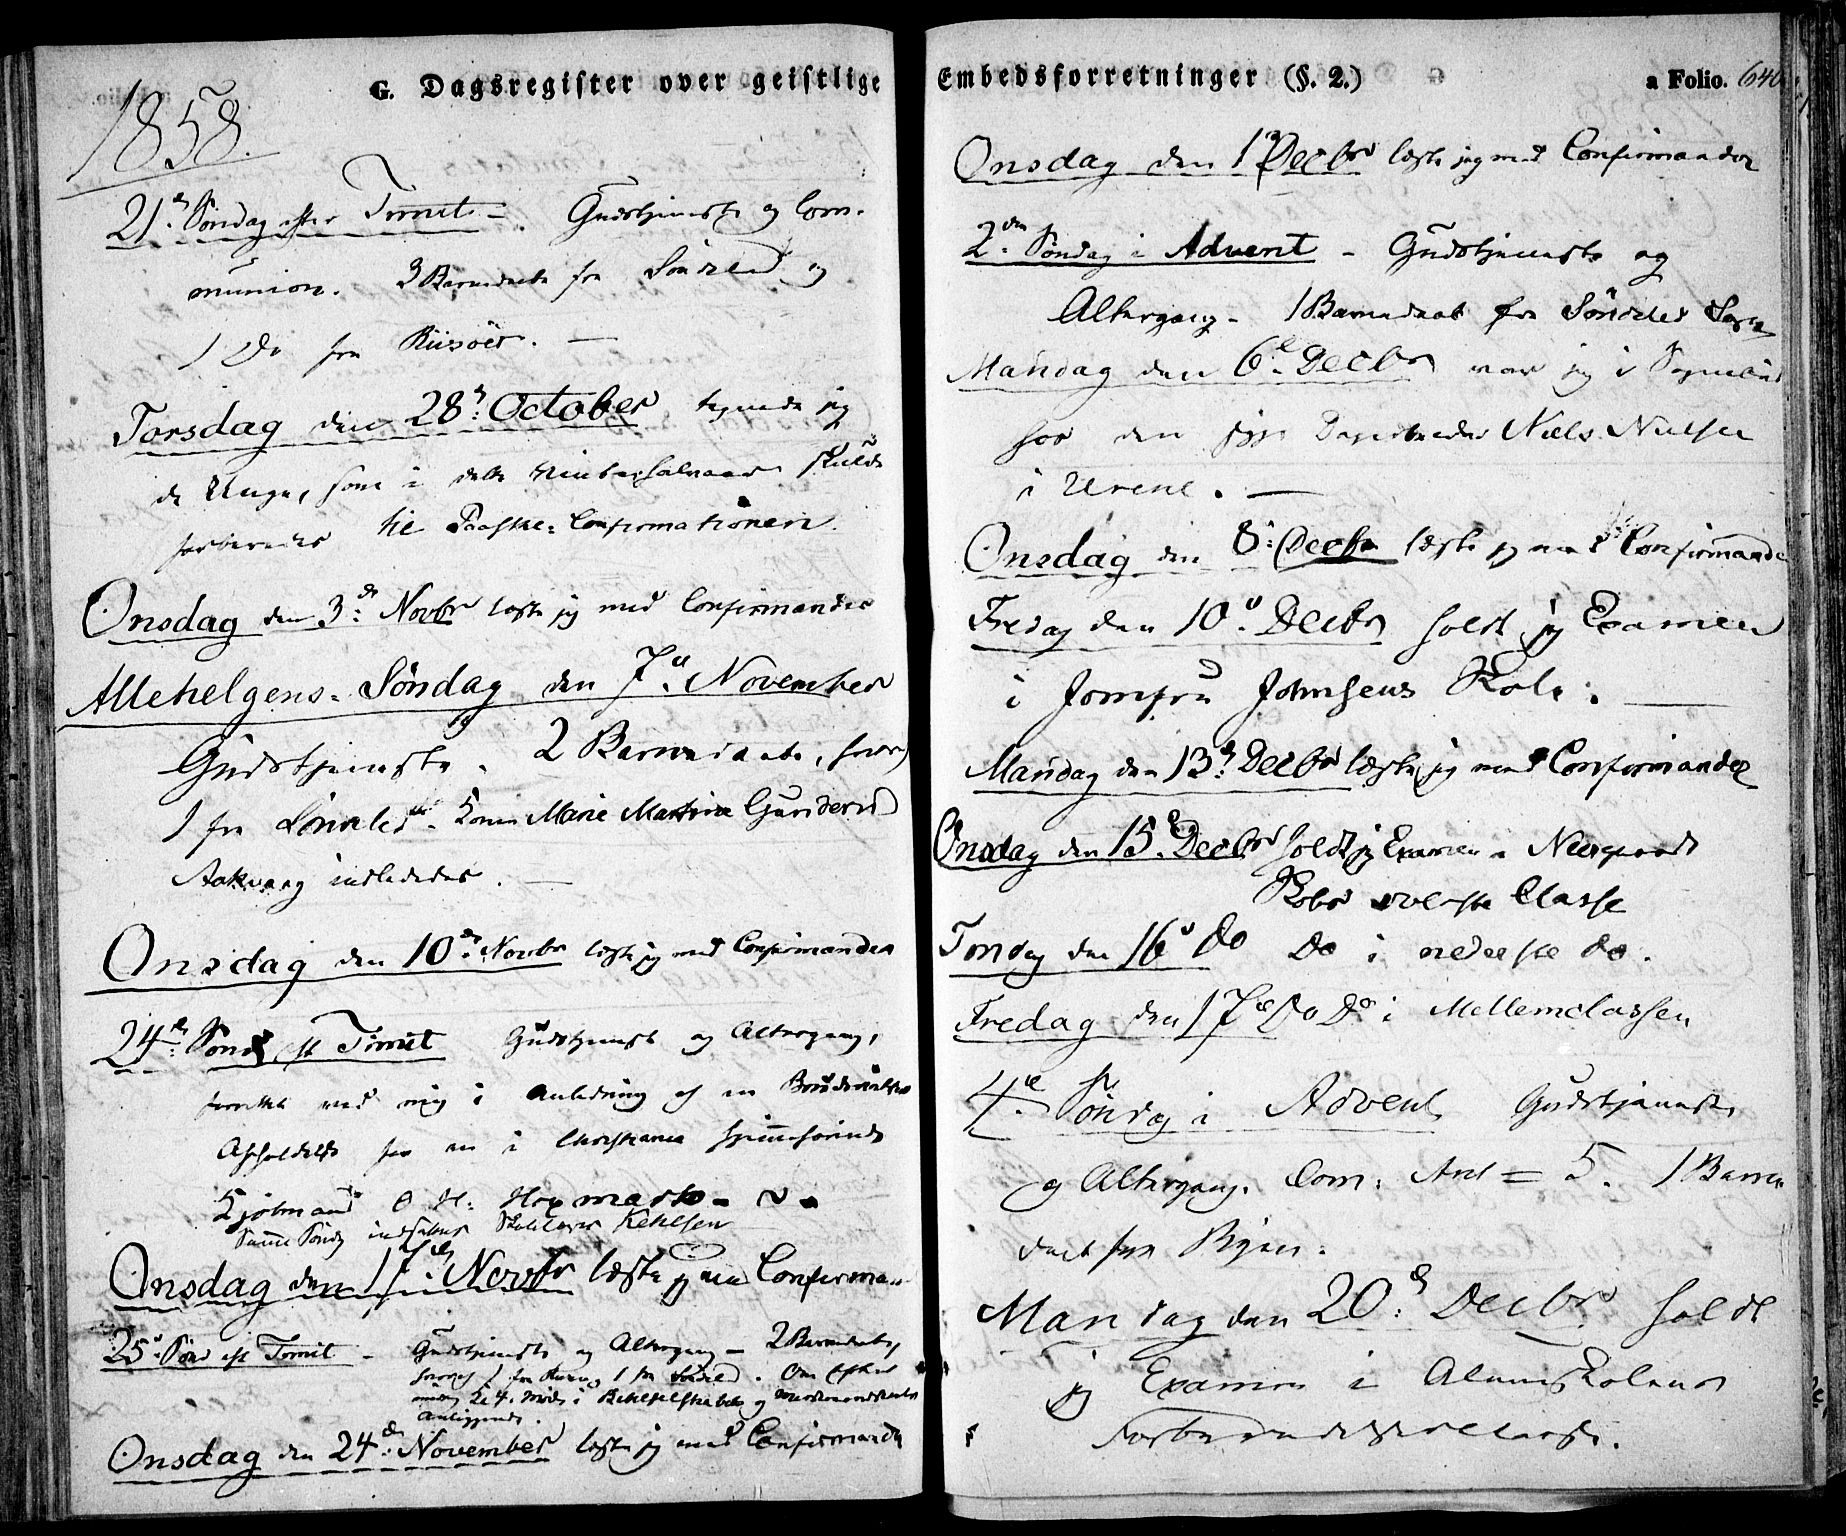 G. Dagsregister over geistlige
1858.
21de Søndag efter Trinit. – Gudstjeneste og Com-
munion. 3 Barnedaab fra Søndeled og
1 Do fra Riisöer. –
Torsdag den 28de October tegnede jeg
de Unge, som i dette Vinterhalvaar skulde
forberedes til Paaske-Confirmationen.
Onsdag den 3de Novbr læste jeg med Confirmander
Allehelgens-Søndag den 7de November
Gudstjeneste. 2 Barnedaab, hvoraf
1 fra Søndeled. Konen Marie Martine Gundersd
Aakvaag indlededes. –
Onsdag den 10de Novbr læste jeg med Confirmander
24de Sønd. eft Trinit Gudstjenst og Altergang,
ved mig i Anledning af en
Afholdelse for en i Christiania
Kjøbmand O. H. Hoxmark –
Samme Søndag indsattes Skolelærer Kehlsen
Onsdag den 17de Novbr læste jeg med Confirman
25de Sønd eft Trinit – Gudstjeneste og Altergang – 2 Barnedaab,
hvoraf 1 fra Riisøer, 1 fra Søndeled. Om Efter
middag Kl 4. Møde i Bibelselskabets og
Anliggende.
Onsdag den 24de November læste jeg med Confirmander
Embedsforretninger (§. 2.)
a Folio. 640
Onsdag den 1ste Decbr læste jeg med Confirmander
2den Søndag i Advent – Gudstjeneste og
Altergang – 1 Barnedaab fra Söndeled Sogn
Mandag den 6te Decbr var jeg i Sognebud
hos den syge Niels Nielsen
i Urene. –
Onsdag den 8de Decbr læste jeg med Confirmander
Fredag den 10de Decbr holdt jeg Examen
i Jomfru Johnsens Skole. –
Mandag den 13de Decbr læste jeg med Confirmander
Onsdag den 15de Decbr holdt jeg Examen i Neergaards
Skoles øverste Classe
Torsdag den 16de Do Do i nederste do.
Fredag den 17de Do Do i Mellemclassen
4de Søndag i Advent Gudstjeneste
og Altergang. Com. Ant = 5. 1 Barne
daab fra Byen.
Mandag den 20de Decbr holdt
jeg Examen i Almueskolens
Forberedelsesclasse.